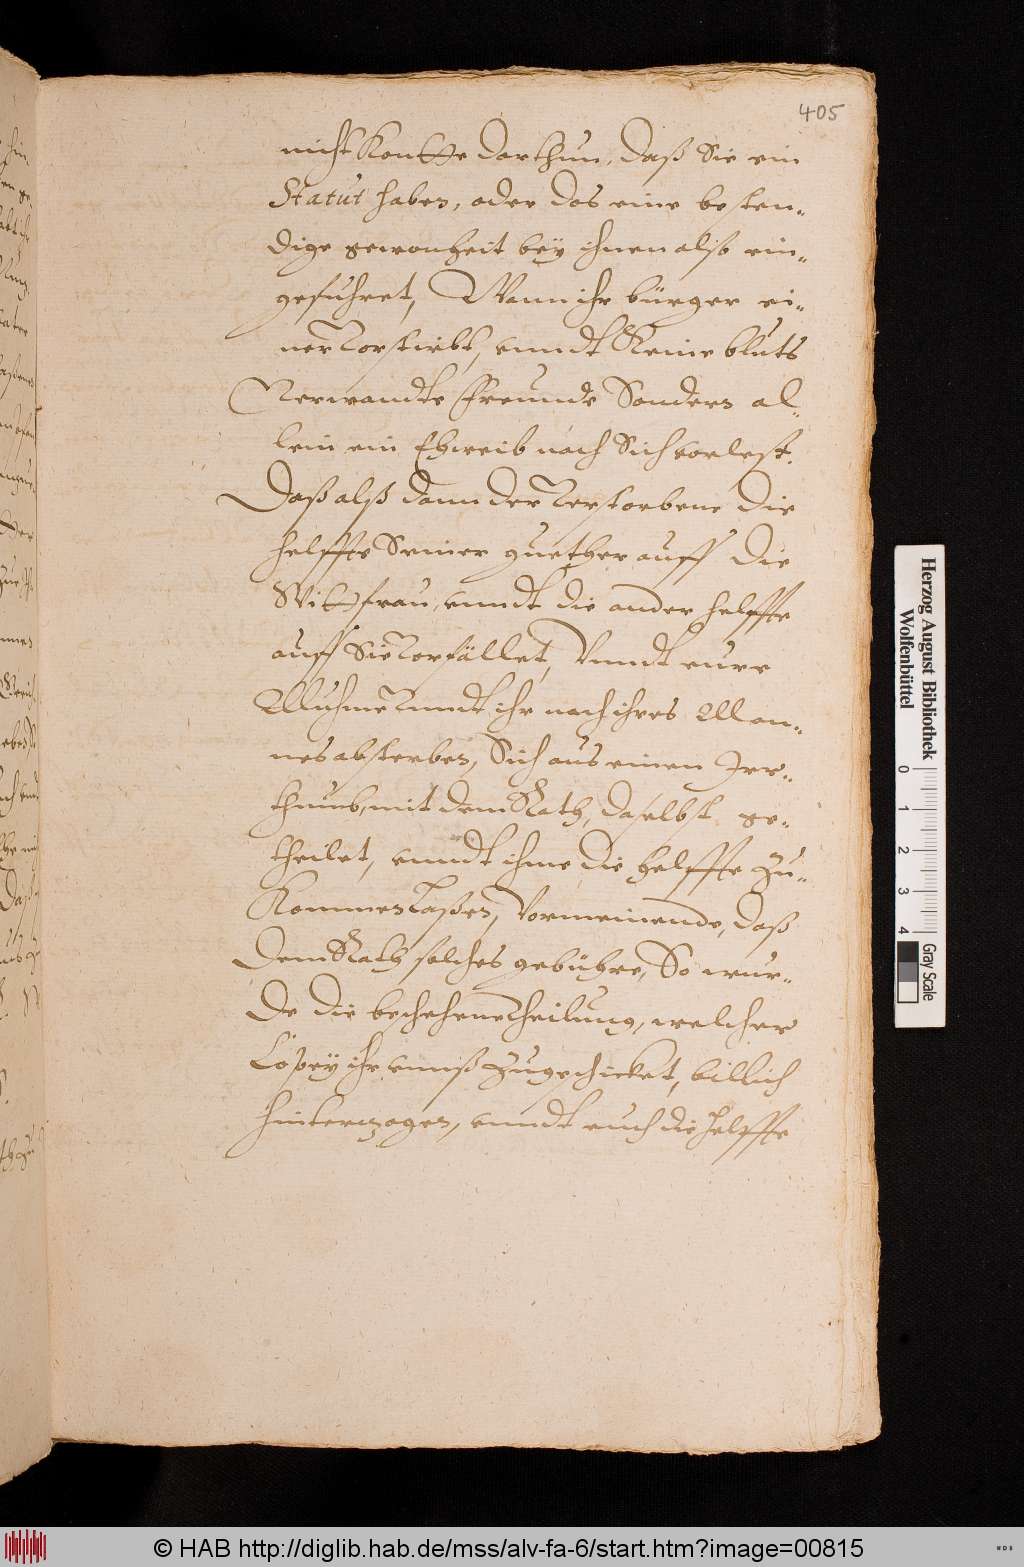 405
nicht Kontte darthun, daß Sie ein
Statut haben, oder das eine besten„
dige gewonheit beÿ ihnen also ein„
gefuhret, Wann ihr bürger ei„
ner Vorstirbt, vnndt Keine bluts
Verwandte Freunde Sondern al„
lein ein Ehweib nach Sich vorlest.
Daß alß dann der Verstorbene die
helffte Seiner guether auff die
Wittfrau, vnndt die ander helffte
auff Sie Vorfället, Vnndt eure
Muhme Vnndt ihr nach ihres Man„
nes absterben, Sich aus einen Irr„
thumb, mit dem Rath, daselbst ge„
theilet, vnndt ihme die helffte zu„
Kommen Laßen, Vormeinende, daß
dem Rath solches gebühre, So wur„
de die beschehene Theilung, welcher
ihr vnnß zugeschicket, billich
hinterzogen, vnndt euch die helffte
Herzog August Bibliothek
Wolfenbüttel
0 1 2 3 4
Gray Scale
© HAB http://diglib.hab.de/mss/alv-fa-6/start.htm?image=00815